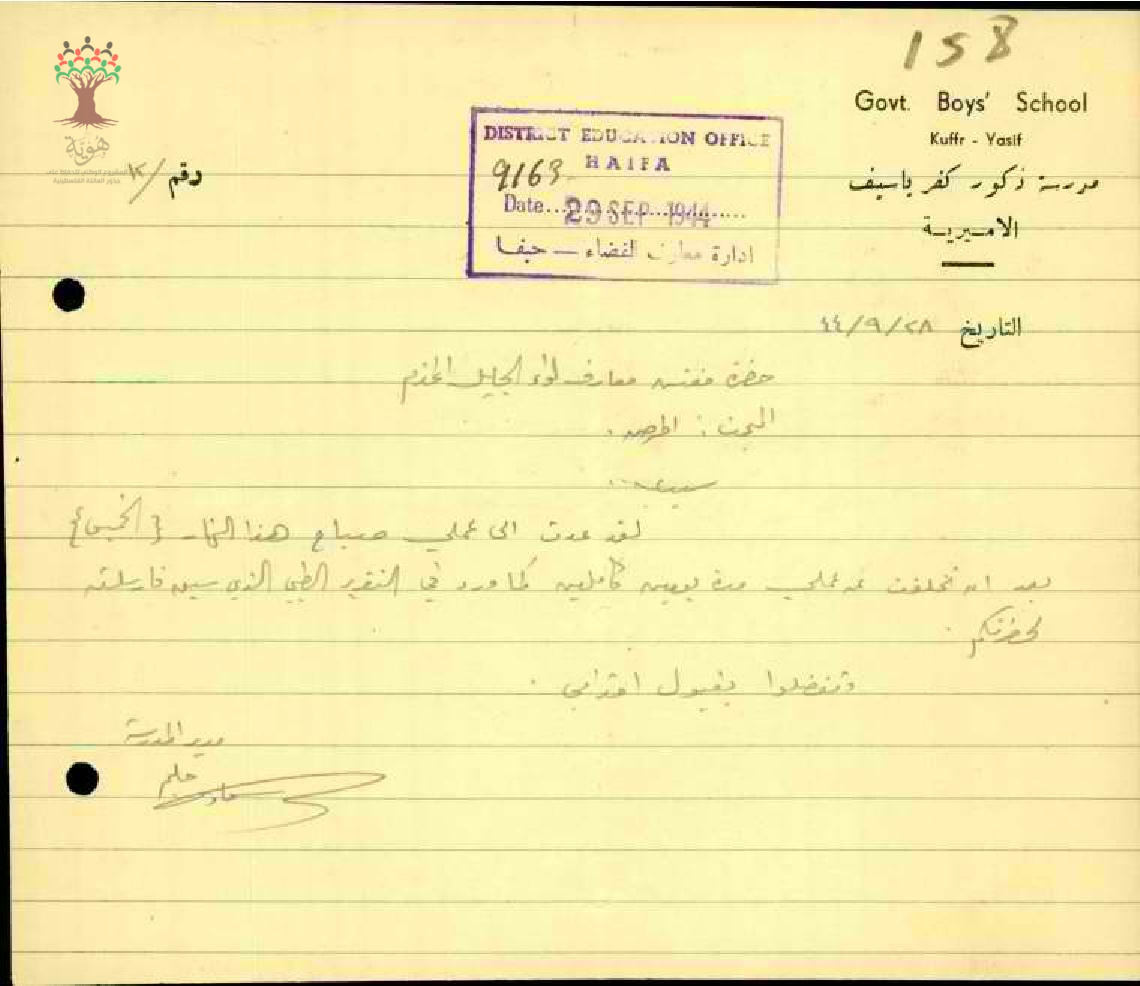 158
Govt. Boys' School
Kuffr - Yasif
مدرسة ذكور كفر ياسيف
الاميرية
هوية
رقم /١٢
DISTRICT EDUCATION OFFICE
HAIFA
9163
Date... 29 SEP 1944
ادارة معارف القضاء — حيفا
التاريخ ٤٤/٩/٢٨
حضرة مفتش معارف لواء الجليل المحترم
البحث : المرض .
سيدي
لقد عدت الى عملي صباح هذا النهار {الخميس}
بعد ان تخلفت عن عملي مدة يومين كاملين كما ورد في التقرير الطبي الذي سبق فارسلته
لحضرتكم
وتفضلوا بقبول احترامي .
مدير المدرسة
حليم